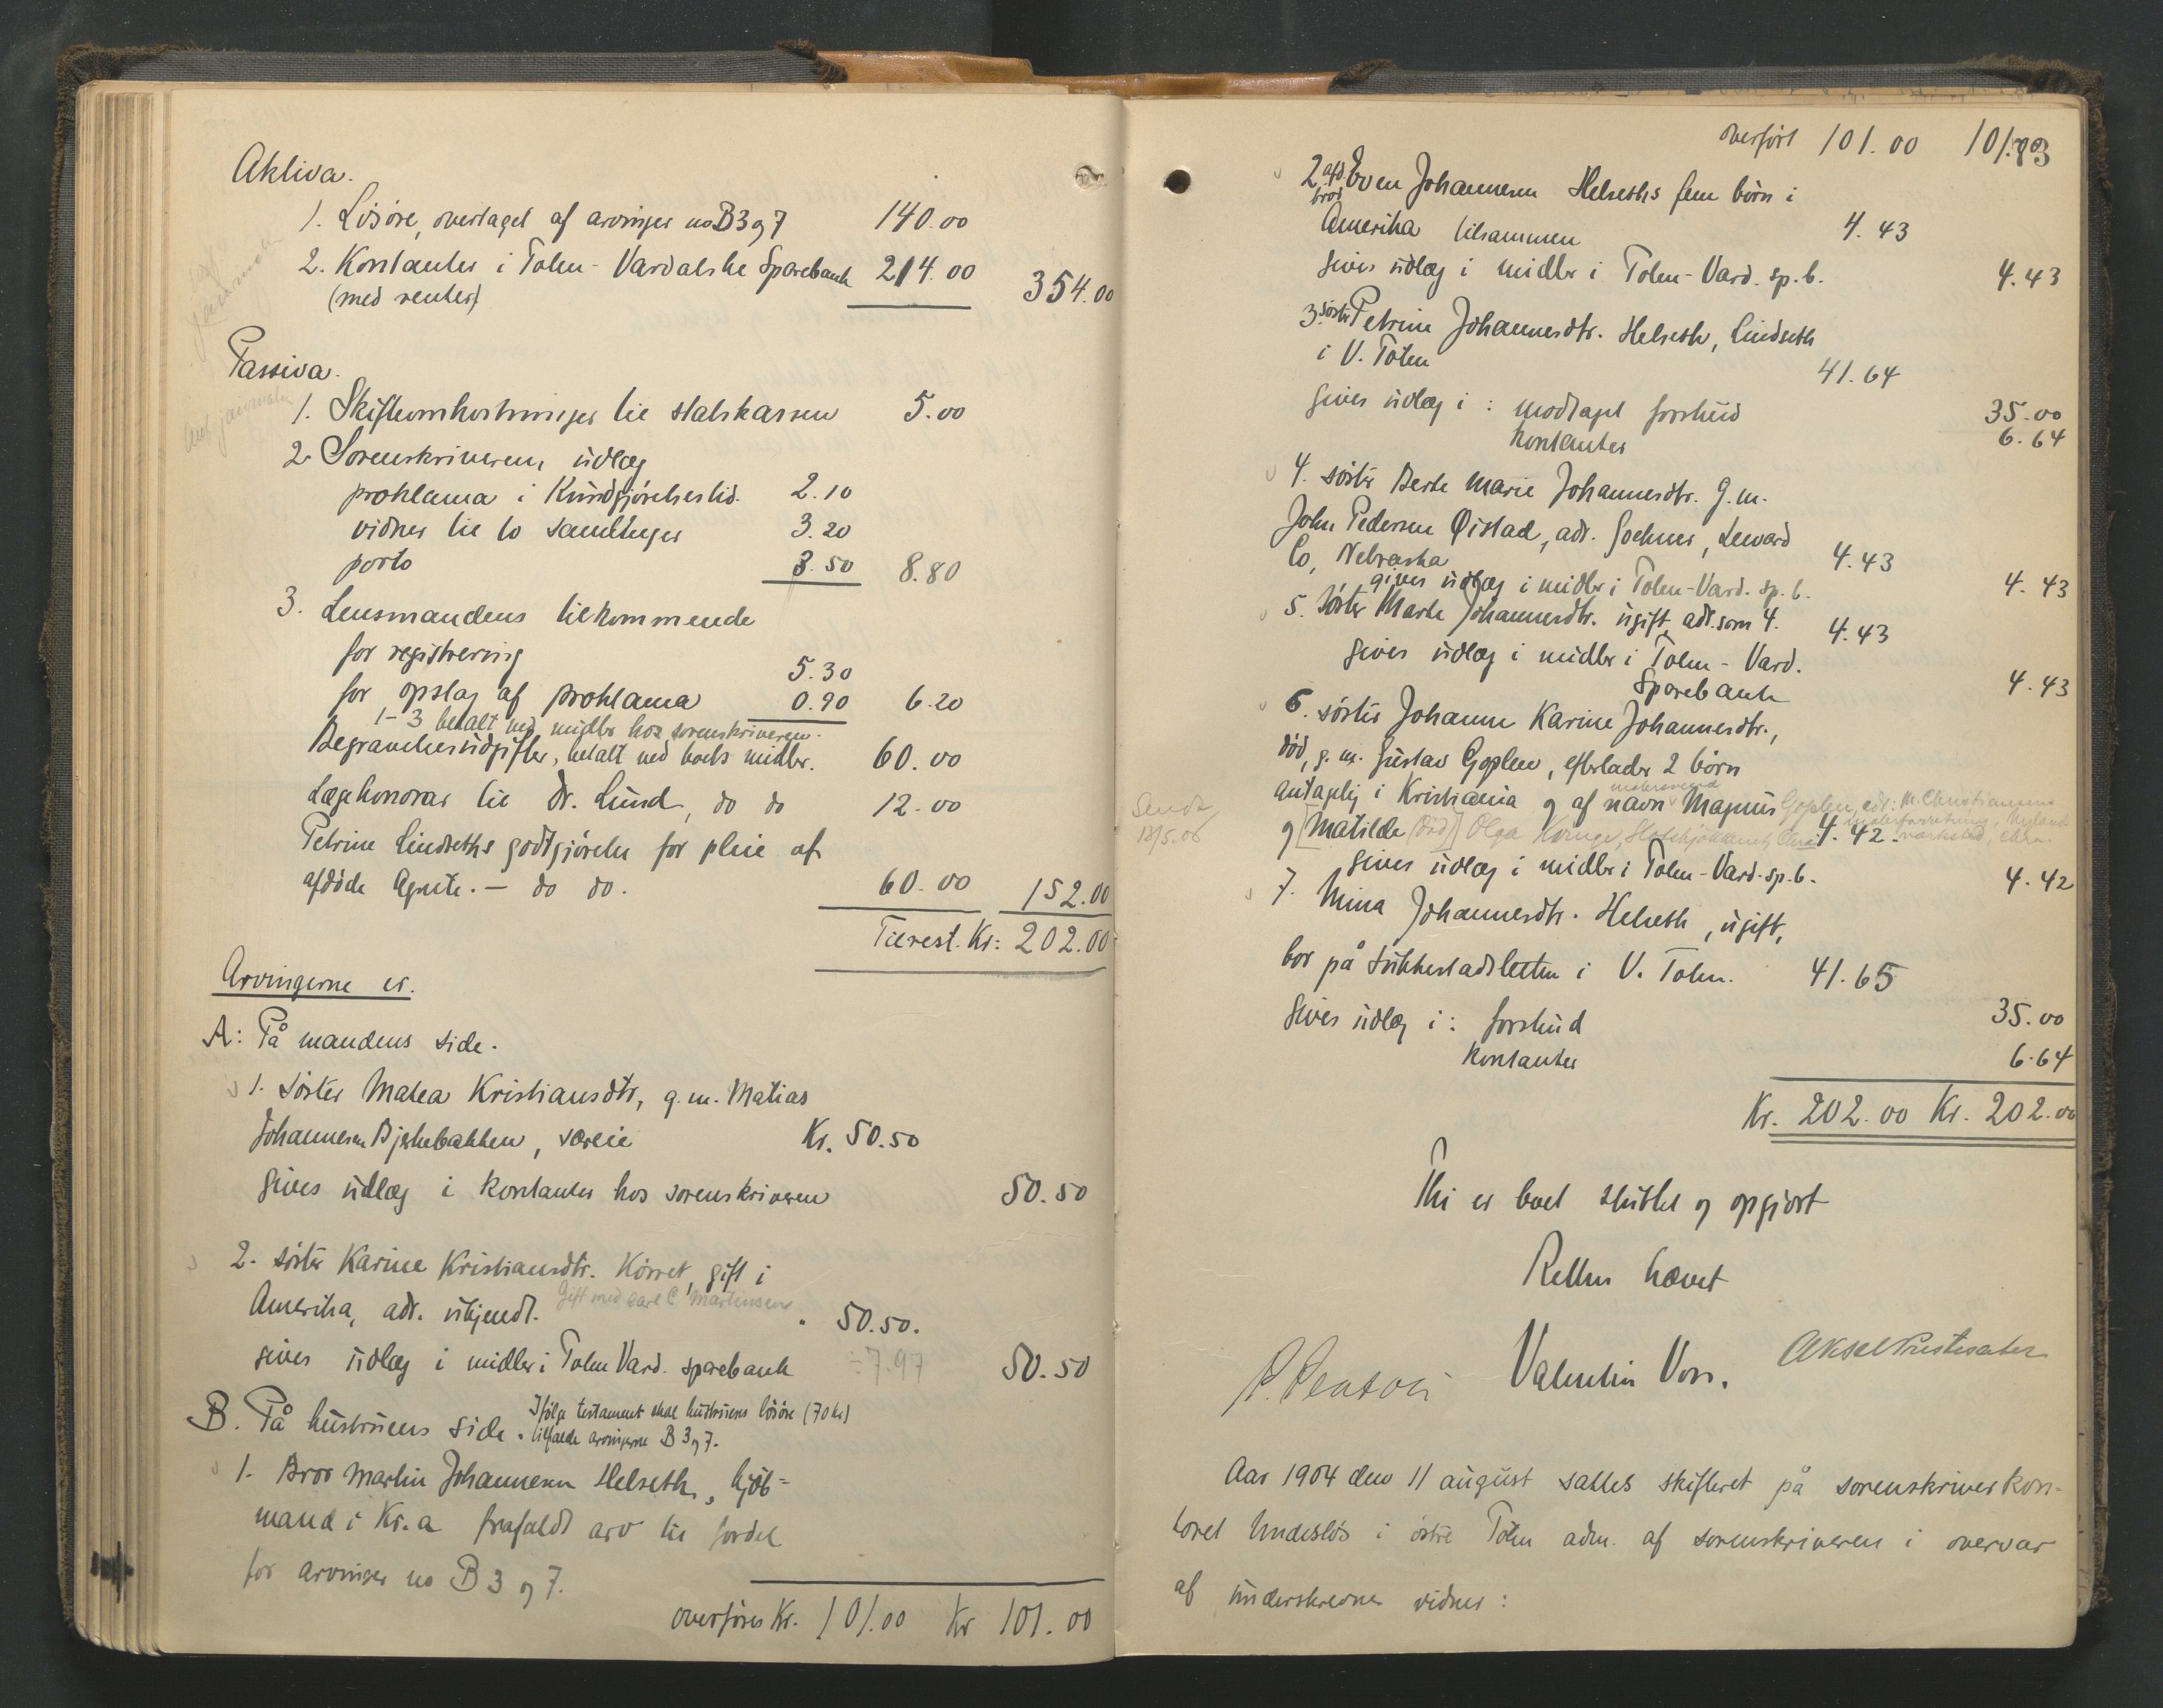 Aktiva.
1. Løsøre, overtaget af arvinger no B 3 og 7 140.00
2. Kontanter i Toten-Vardalske Sparebank 214.00
(med renter) 354.00
Passiva.
1. Skifteomkostninger til statskassen 5.00
2. Sorenskriverens udlæg
proklama i Kundgjørelsestid. 2.10
vidner til to samlinger 3.20
porto 3.50 8.80
3. Lensmandens tilkommende
for registrering 5.30
for opslag af proklama 0.90 6.20
1-3 betalt med midler hos sorenskriveren.
Begravelsesudgifter, betalt med boets midler. 60.00
Lægehonorar til Dr. Lund, do do 12.00
Petrine Lindseths godtgjørelse for pleie af
afdøde Agnete. — do do. 60.00 152.00
Tilrest. Kr: 202.00
Arvingerne er.
A: På mandens side.
1. Søster Matea Kristiansdtr, g.m. Matias
Johannesen Bjerkebakken, særeie Kr. 50.50
gives udlæg i kontanter hos sorenskriveren 50.50
2. søster Karine Kristiansdtr. Kørret, gift i
Amerika, adr. ukjendt. Gift med Carl C Martinsen " 50.50.
gives udlæg i midler i Toten Vard. sparebank ÷7.97 50.50
B. På hustruens side. Ifølge testament skal hustruens løsøre (70 kr)
tilfalde arvingerne B 3 og 7.
1. Bror Martin Johannesen Helseth, kjøb=
mand i Kr.a frafaldt arv til fordel
for arvinger no B 3 og 7.
overføres Kr. 101.00 Kr 101.00
overført 101.00 101.00
83
2 afd. bror Even Johannesen Helseths fem børn i
Amerika tilsammen 4.43
gives udlæg i midler i Toten-Vard. sp.b. 4.43
3. søster Petrine Johannesdtr. Helseth, Lindseth
i V. Toten 41.64
gives udlæg i: modtaget forskud 35.00
Kontanter 6.64
4. søster Berte Marie Johannesdtr. g.m.
John Pedersen Øistad, adr. Goehner, Seward
Co, Nebraska 4.43
gives udlæg i midler i Toten-Vard. sp.b. 4.43
5. søster Marte Johannesdtr. ugift, adr. som 4. 4.43
gives udlæg i midler i Toten-Vard.
Sparebank 4.43
6. søster Johanne Karine Johannesdtr.,
død, g.m. Gustav Goplen, efterlader 2 børn
antagelig i Kristiania og af navn malersvend Magnus Goplen, adr: M. Christiansens
malerforretning, Nylands
værksted, Chra.
Sendt
18/5.06
og [Matilde (død)] Olga 4.42.
gives udlæg i midler i Toten-Vard. sp.b. 4.42
7. Mina Johannesdtr. Helseth, ugift,
bor på Sukkestadsletten i V. Toten. 41.65
gives udlæg i: forskud 35.00
Kontanter 6.64
Kr. 202.00 Kr. 202.00
Thi er boet sluttet og opgjort
Retten hævet
Valentin Voss.
Aar 1904 den 11 august sattes skifteret på sorenskriverkon=
toret Lundesløs i østre Toten adm. af sorenskriveren i overvær
af underskrevne vidner: